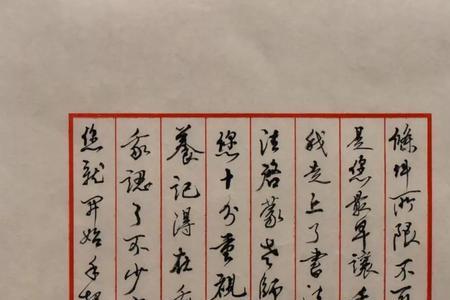 條件所限不
是您最早讓
我走上了書法
法啓蒙老師
您十分重視
養記得在
我認了不少
您就開始手